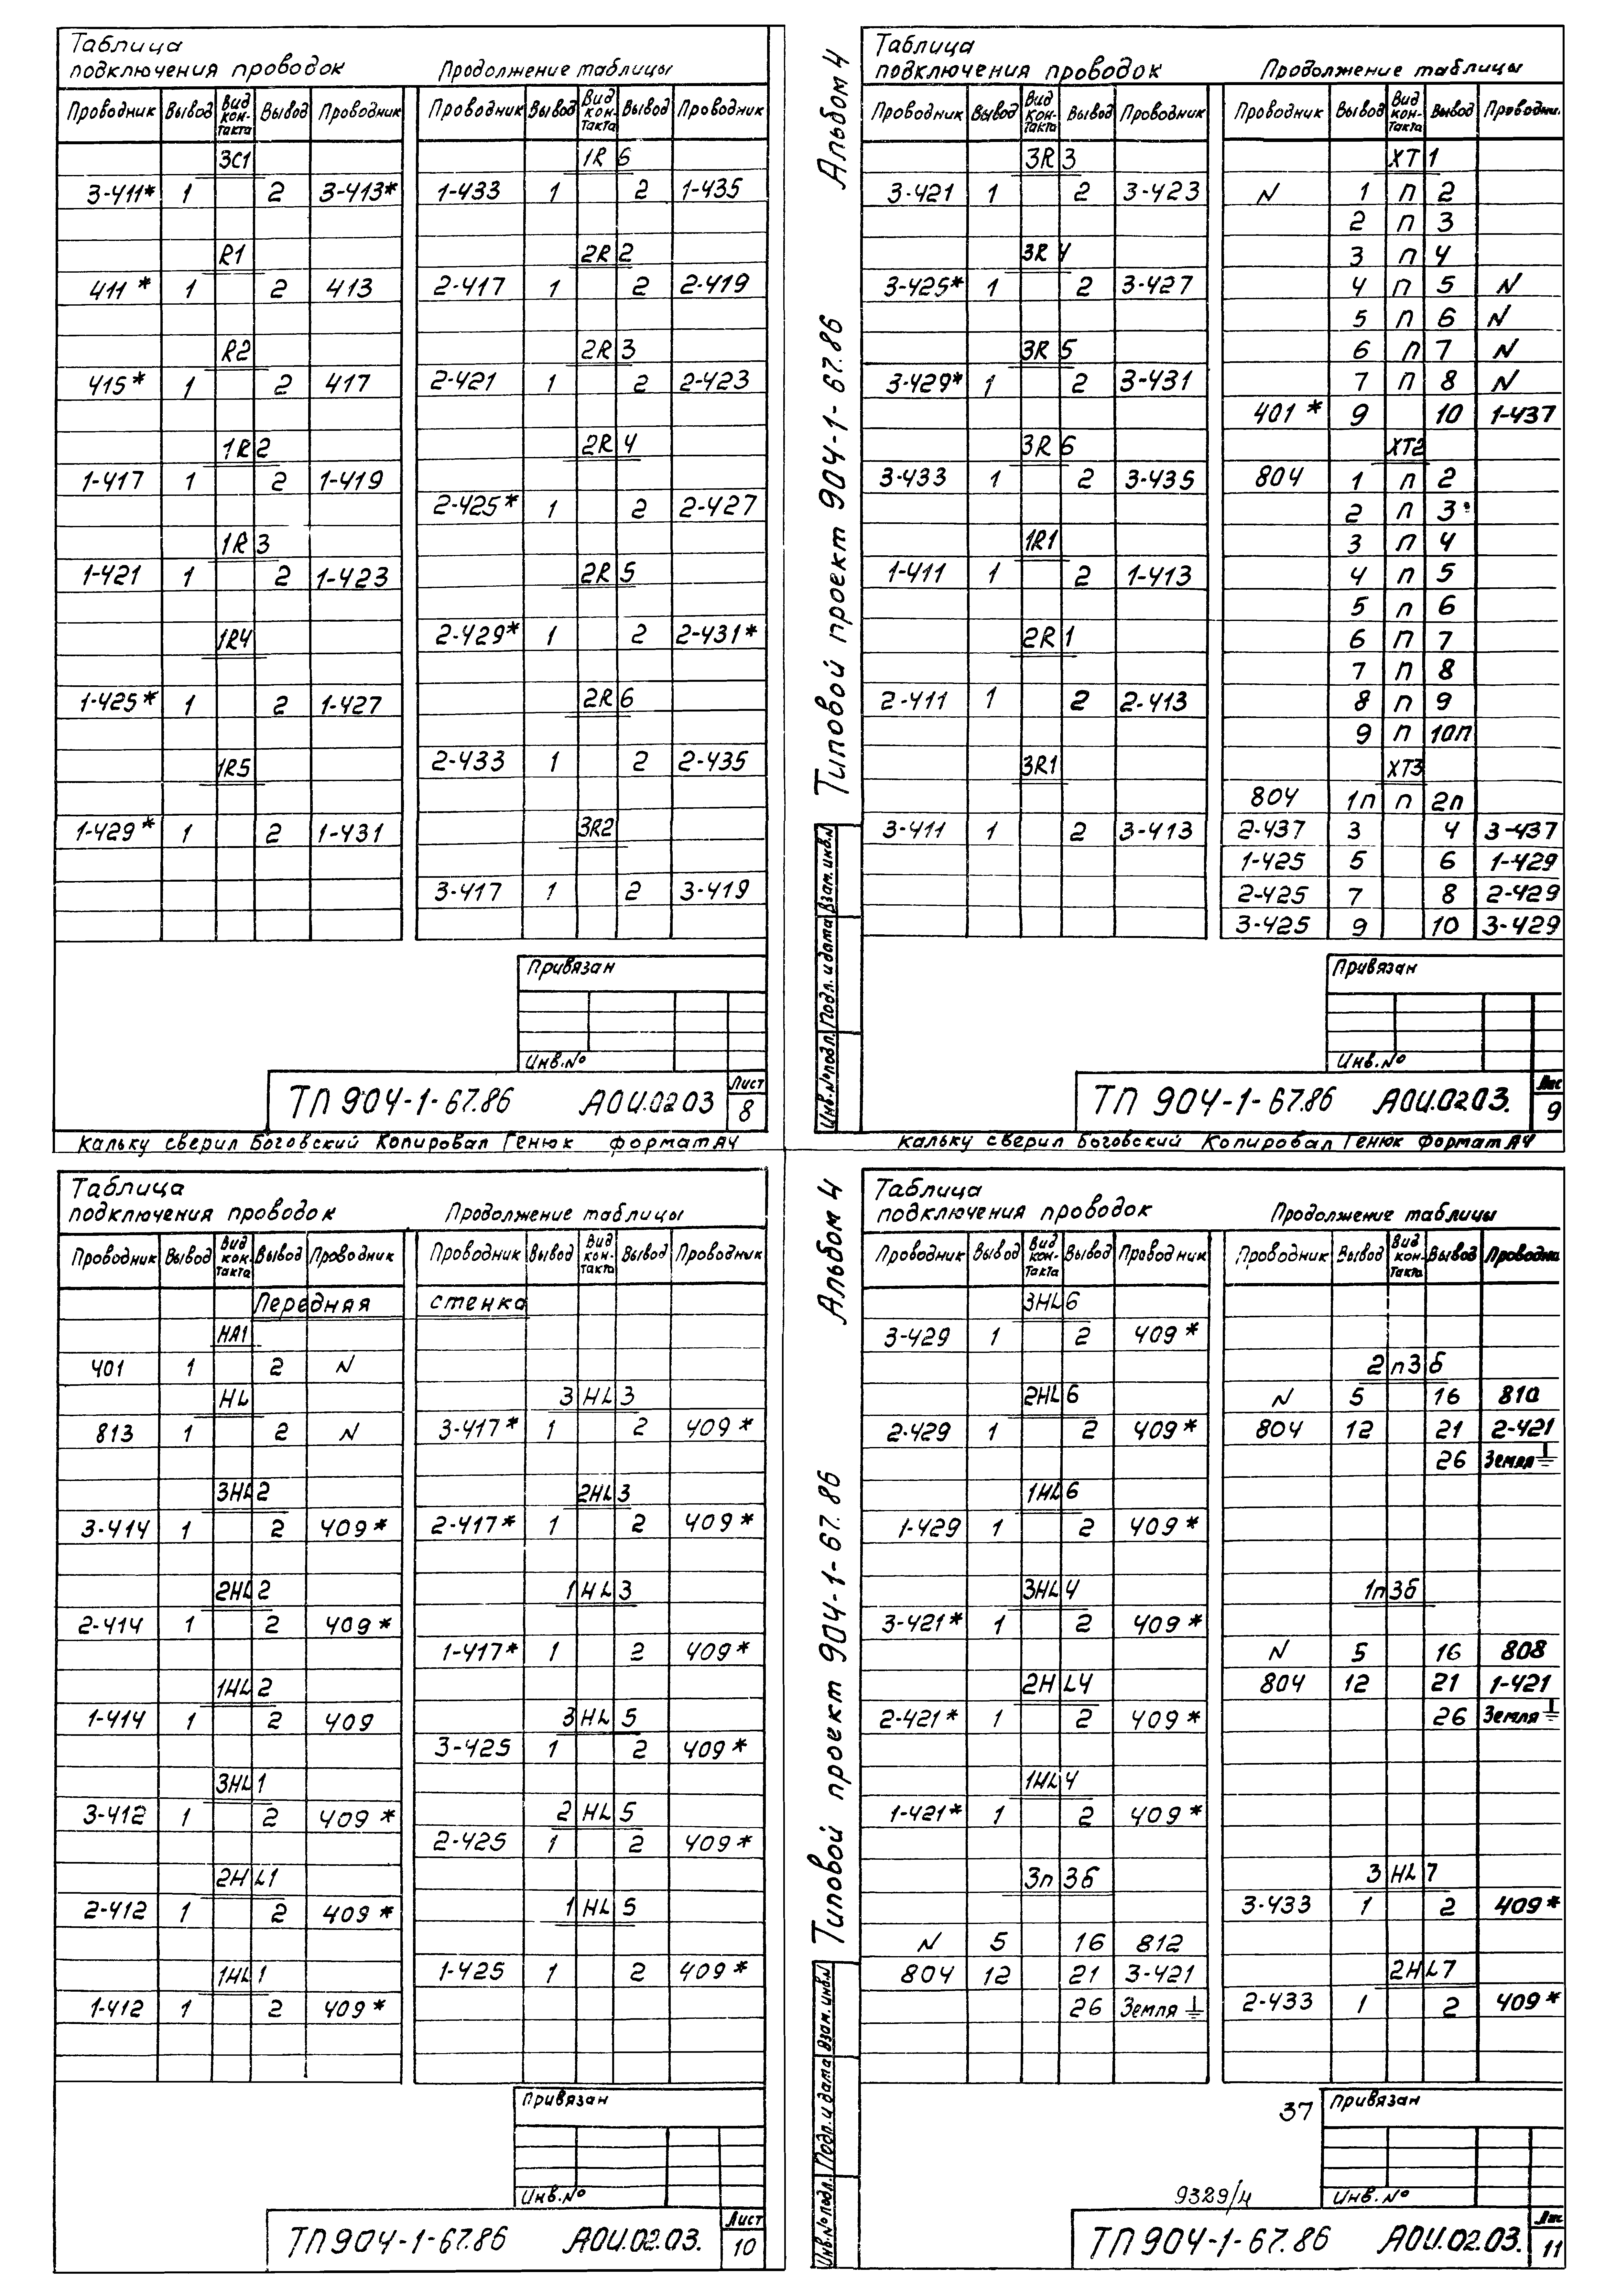 Таблица
подключения проводок
Продолжение таблицы
Проводник Вывод Вид контакта Вывод Проводник
3С1
3-411* 1 2 3-413*
R1
411* 1 2 413
R2
415* 1 2 417
1R2
1-417 1 2 1-419
1R3
1-421 1 2 1-423
1R4
1-425* 1 2 1-427
1R5
1-429* 1 2 1-431
Проводник Вывод Вид контакта Вывод Проводник
1R6
1-433 1 2 1-435
2R2
2-417 1 2 2-419
2R3
2-421 1 2 2-423
2R4
2-425* 1 2 2-427
2R5
2-429* 1 2 2-431*
2R6
2-433 1 2 2-435
3R2
3-417 1 2 3-419
Привязан
Инв.№
ТП 904-1-67.86 АОИ.02 03
Лист
8
Кальку сверил Боговский Копировал Генюк формат А4
Альбом 4
Типовой проект 904-1-67.86
Таблица
подключения проводок
Продолжение таблицы
Проводник Вывод Вид кон-такта Вывод Проводник
3R3
3-421 1 2 3-423
3R4
3-425* 1 2 3-427
3R5
3-429* 1 2 3-431
3R6
3-433 1 2 3-435
1R1
1-411 1 2 1-413
2R1
2-411 1 2 2-413
3R1
3-411 1 2 3-413
Проводник Вывод Вид кон-такта Вывод Проводни.
XT1
N 1 п 2
2 п 3
3 п 4
4 п 5 N
5 п 6 N
6 п 7 N
7 п 8 N
401* 9 10 1-437
XT2
804 1 п 2
2 п 3
3 п 4
4 п 5
5 п 6
6 п 7
7 п 8
8 п 9
9 п 10п
XT3
804 1п п 2п
2-437 3 4 3-437
1-425 5 6 1-429
2-425 7 8 2-429
3-425 9 10 3-429
Инв.№ подл. Подп. и дата Взам.инв.№
Привязан
Инв.№
ТП 904-1-67.86 АОИ.02 03.
Лис
9
Кальку сверил Боговский Копировал Генюк формат А4
Таблица
подключения проводок
Продолжение таблицы
Проводник Вывод Вид кон-такта Вывод Проводник
Передняя стенка
HA1
401 1 2 N
HL
813 1 2 N
3HL2
3-414 1 2 409*
2HL2
2-414 1 2 409*
1HL2
1-414 1 2 409
3HL1
3-412 1 2 409*
2HL1
2-412 1 2 409*
1HL1
1-412 1 2 409*
Проводник Вывод Вид кон-такта Вывод Проводник
3HL3
3-417* 1 2 409*
2HL3
2-417* 1 2 409*
1HL3
1-417* 1 2 409*
3HL5
3-425 1 2 409*
2HL5
2-425 1 2 409*
1HL5
1-425 1 2 409*
Привязан
Инв.№
ТП 904-1-67.86 АОИ.02.03.
Лист
10
Альбом 4
Типовой проект 904-1-67.86
Таблица
подключения проводок
Продолжение таблицы
Проводник Вывод Вид кон-такта Вывод Проводник
3HL6
3-429 1 2 409*
2HL6
2-429 1 2 409*
1HL6
1-429 1 2 409*
3HL4
3-421* 1 2 409*
2HL4
2-421* 1 2 409*
1HL4
1-421* 1 2 409*
3п3б
N 5 16 812
804 12 21 3-421
26 Земля ⏚
Проводник Вывод Вид кон-такта Вывод Проводни
2п3б
N 5 16 810
804 12 21 2-421
26 Земля ⏚
1п3б
N 5 16 808
804 12 21 1-421
26 Земля ⏚
3HL7
3-433 1 2 409*
2HL7
2-433 1 2 409*
Инв.№ подл. Подп. и дата Взам.инв.№
37
Привязан
Инв.№
9329/4
ТП 904-1-67.86 АОИ.02.03.
Лис
11